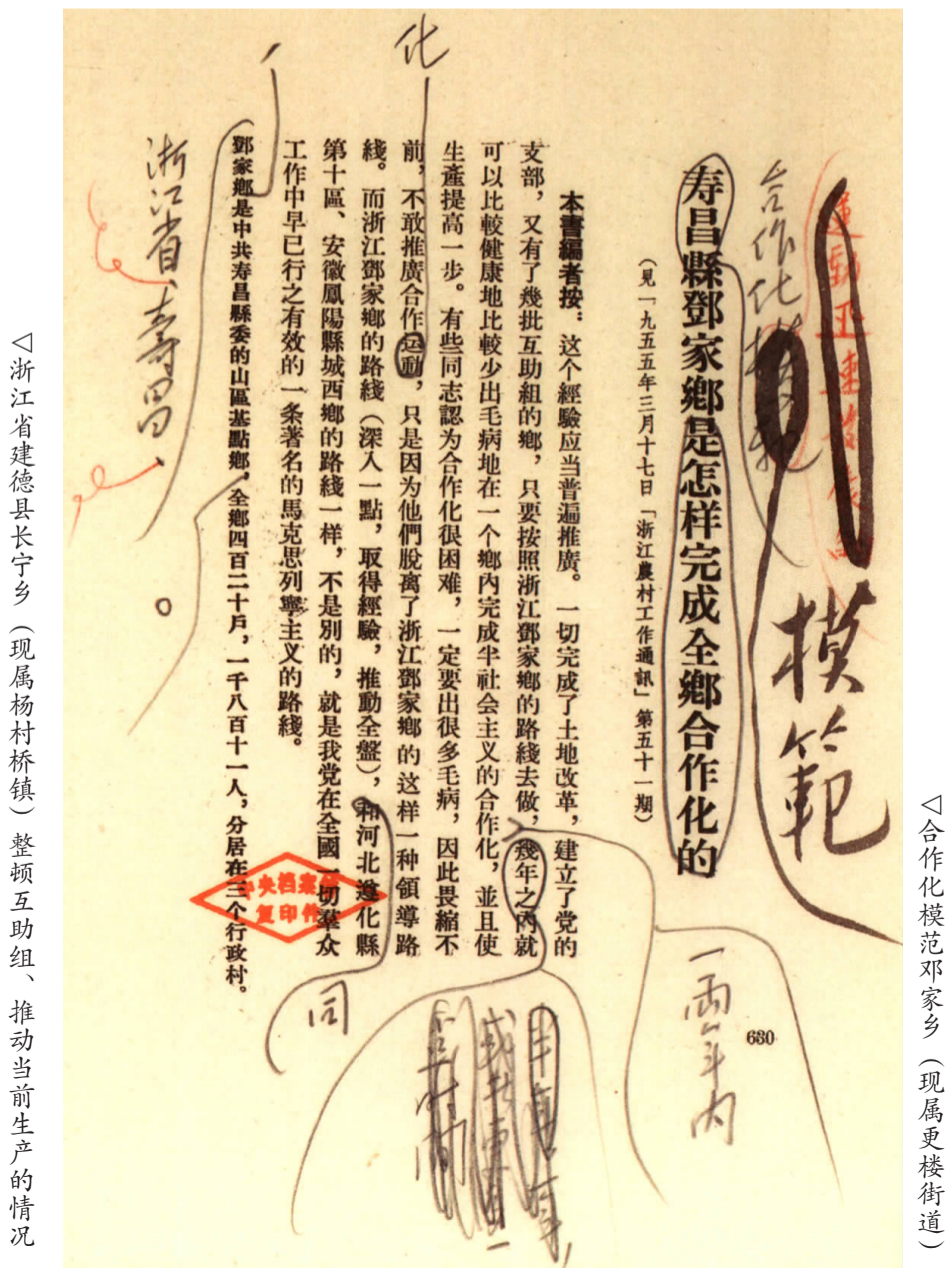 ◁合作化模范邓家乡（现属更楼街道）
模範
合作化模範
寿昌縣鄧家鄉是怎样完成全鄉合作化的
（見一九五五年三月十七日「浙江農村工作通訊」第五十一期）
本書編者按：这个經驗应当普遍推廣。一切完成了土地改革，建立了党的
支部，又有了幾批互助組的鄉，只要按照浙江鄧家鄉的路綫去做，幾年之內就
可以比較健康地比較少出毛病地在一个鄉內完成半社会主义的合作化，並且使
生產提高一步。有些同志認为合作化很困难，一定要出很多毛病，因此畏縮不
前，不敢推廣合作运動，只是因为他們脫离了浙江鄧家鄉的这样一种領導路
綫。而浙江鄧家鄉的路綫（深入一點，取得經驗，推動全盤），和河北遵化縣
第十區、安徽鳳陽縣城西鄉的路綫一样，不是別的，就是我党在全國一切羣众
工作中早已行之有效的一条著名的馬克思列寧主义的路綫。
鄧家鄉是中共寿昌縣委的山區基點鄉，全鄉四百二十戶，一千八百十一人，分居在三个行政村。
化
浙江省、壽昌、
一兩年内
同
630
中央档案馆
复印件
◁浙江省建德县长宁乡（现属杨村桥镇）整顿互助组、推动当前生产的情况